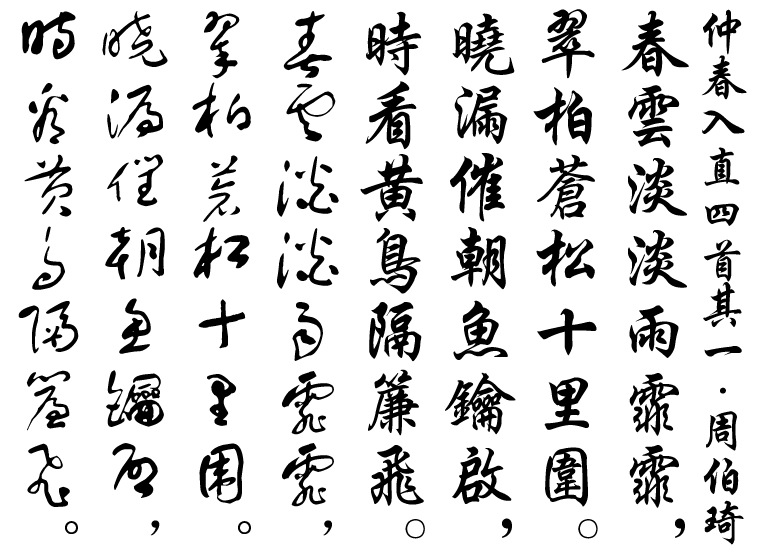 仲春入直四首其一·周伯琦
春雲淡淡雨霏霏，
翠柏蒼松十里圍。
曉漏催朝魚鑰啟，
時看黃鳥隔簾飛。
春雲淡淡雨霏霏，
翠柏蒼松十里圍。
曉漏催朝魚鑰啟，
時看黃鳥隔簾飛。